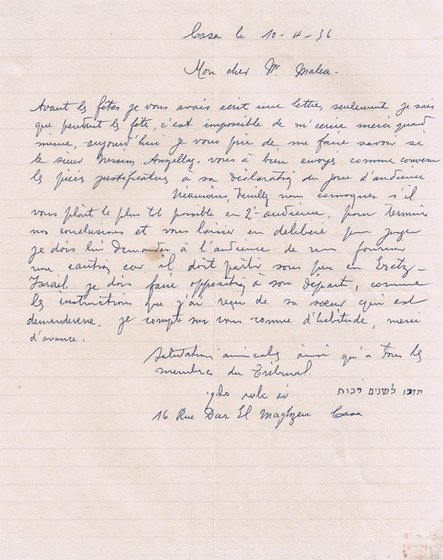 Casa le 10-4-56
Mon cher Mr. Malca.
Avant les fêtes je vous avais ecrit une lettre, seulement je sais
que pendant les fête, c'est impossible de m'ecrire merci quand
meme, aujourd'hui je vous prie de me faire savoir si
le sieur Nessim vous à bien envoyé comme convenu
les pieces justificatives à sa déclaration du jour d'audience
Néanmoins, Veuillez nous convoquer s'il
vous plait le plus tôt possible en 2e audience, pour terminer
nos conclusions et vous laisser en deliberé pour juger
je dois lui demander à l'audience de nous fournir
une caution car il doit partir sous peu en Eretz-
Israel. je dois faire opposition à son départ, comme
les instructions que j'ai reçu de sa soeur qui est
demanderesse. je compte sur vous comme d'habitude, merci
d'avance.
Salutations amicales ainsi qu'à tous les
membres du Tribunal
תזכו לשנים רבות
16 Rue Dar El Maghzen Casa